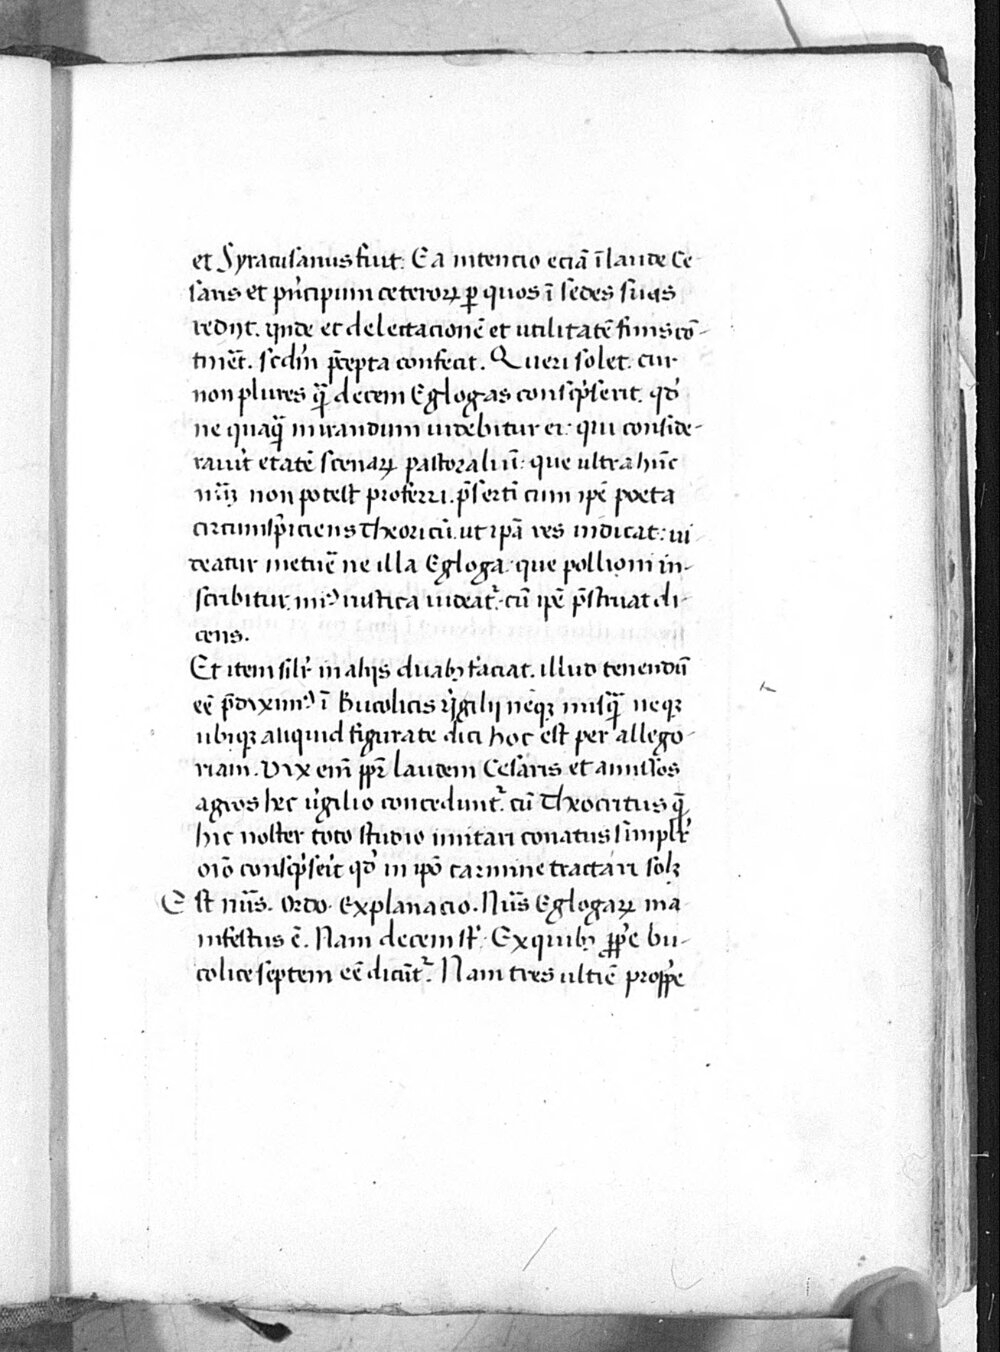 et Syracusanus fuit. Ea intencio eciā ī laude Ce-
saris et pͥncipum ceterorꝝ ꝑ quos ī sedes suas
redijt. ꝟnde et delectacionē et utilitatē finis cō-
tinēt. scdm̄ p̄cepta confecit. Queri solet. cur
non plures qͣ̄ decem Eglogas conscͥpserit. qđ
ne quaqͣ̄ mirandum uidebitur ei. qui conside-
rauit etatē scenarꝝ pastoraliū. que ultra hūc
nūꝝ non potest proferri. p̄sertī cum ipē poeta
circumspiciens theoricū. ut ipā res indicat. ui
deatur metuē ne illa Egloga. que pollioni in-
scribitur. minꝰ rustica uideatʳ. cū ipē p̄struat di-
cens.
Et item silr̄ in alijs duabꝫ faciat. illud tenendū
eē p̄diximꝰ ī Bucolicis uͥgilij neqꝫ nusqͣ̄ neqꝫ
ubiqꝫ aliquid figurate dici hoc est per allego-
riam. Vix enī ꝓpr̄ laudem Cesaris et amissos
agros hec uͥgilio conceduntʳ. cū Theocritus qͣ̄
hic noster toto studio imitari conatus simplr̄
oīo conscͥpserit qđ in ipō carmine tractari solꝫ
Est nūs. Ordo. Explanacio. Nūs Eglogarꝝ ma
nifestus ē. Nam decem st̄. Ex quibꝫ ꝓpͥe bu-
colice septem eē dicūtʳ. Nam tres ultīe propͥe